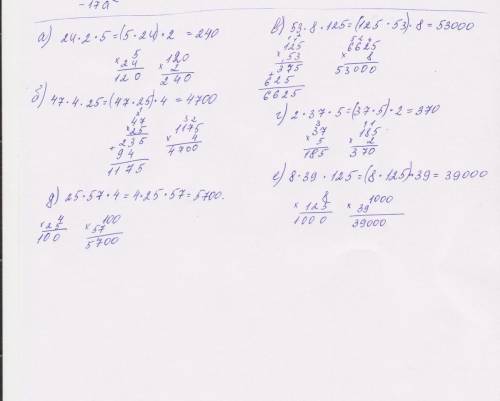 -17a
а) 24·2·5=(5·24)·2 =240
5
×24
120
120
× 2
240
б) 47·4·25=(47·25)·4=4700
47
×25
+235
94
1175
32
1175
× 4
4700
д) 25·57·4=4·25·57=5700.
4
×25
100
100
×57
5700
в) 53·8·125=(125·53)·8=53000
12
125
×53
375
625
6625
522
6625
× 8
53000
г) 2·37·5=(37·5)·2=370
3
37
× 5
185
11
185
× 2
370
е) 8·39·125=(8·125)·39=39000
8
×125
1000
1000
×39
39000